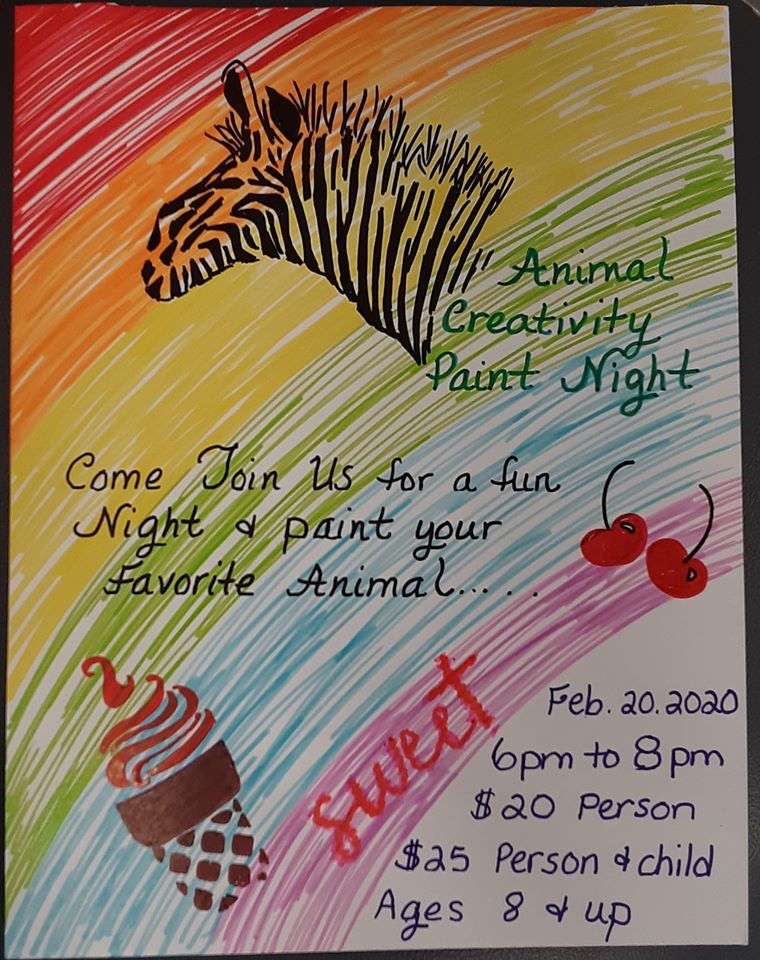 Animal
Creativity
Paint Night
Come Join Us for a fun
Night & paint your
Favorite Animal.....
sweet
Feb. 20. 2020
6pm to 8pm
$20 Person
$25 Person & child
Ages 8 & up